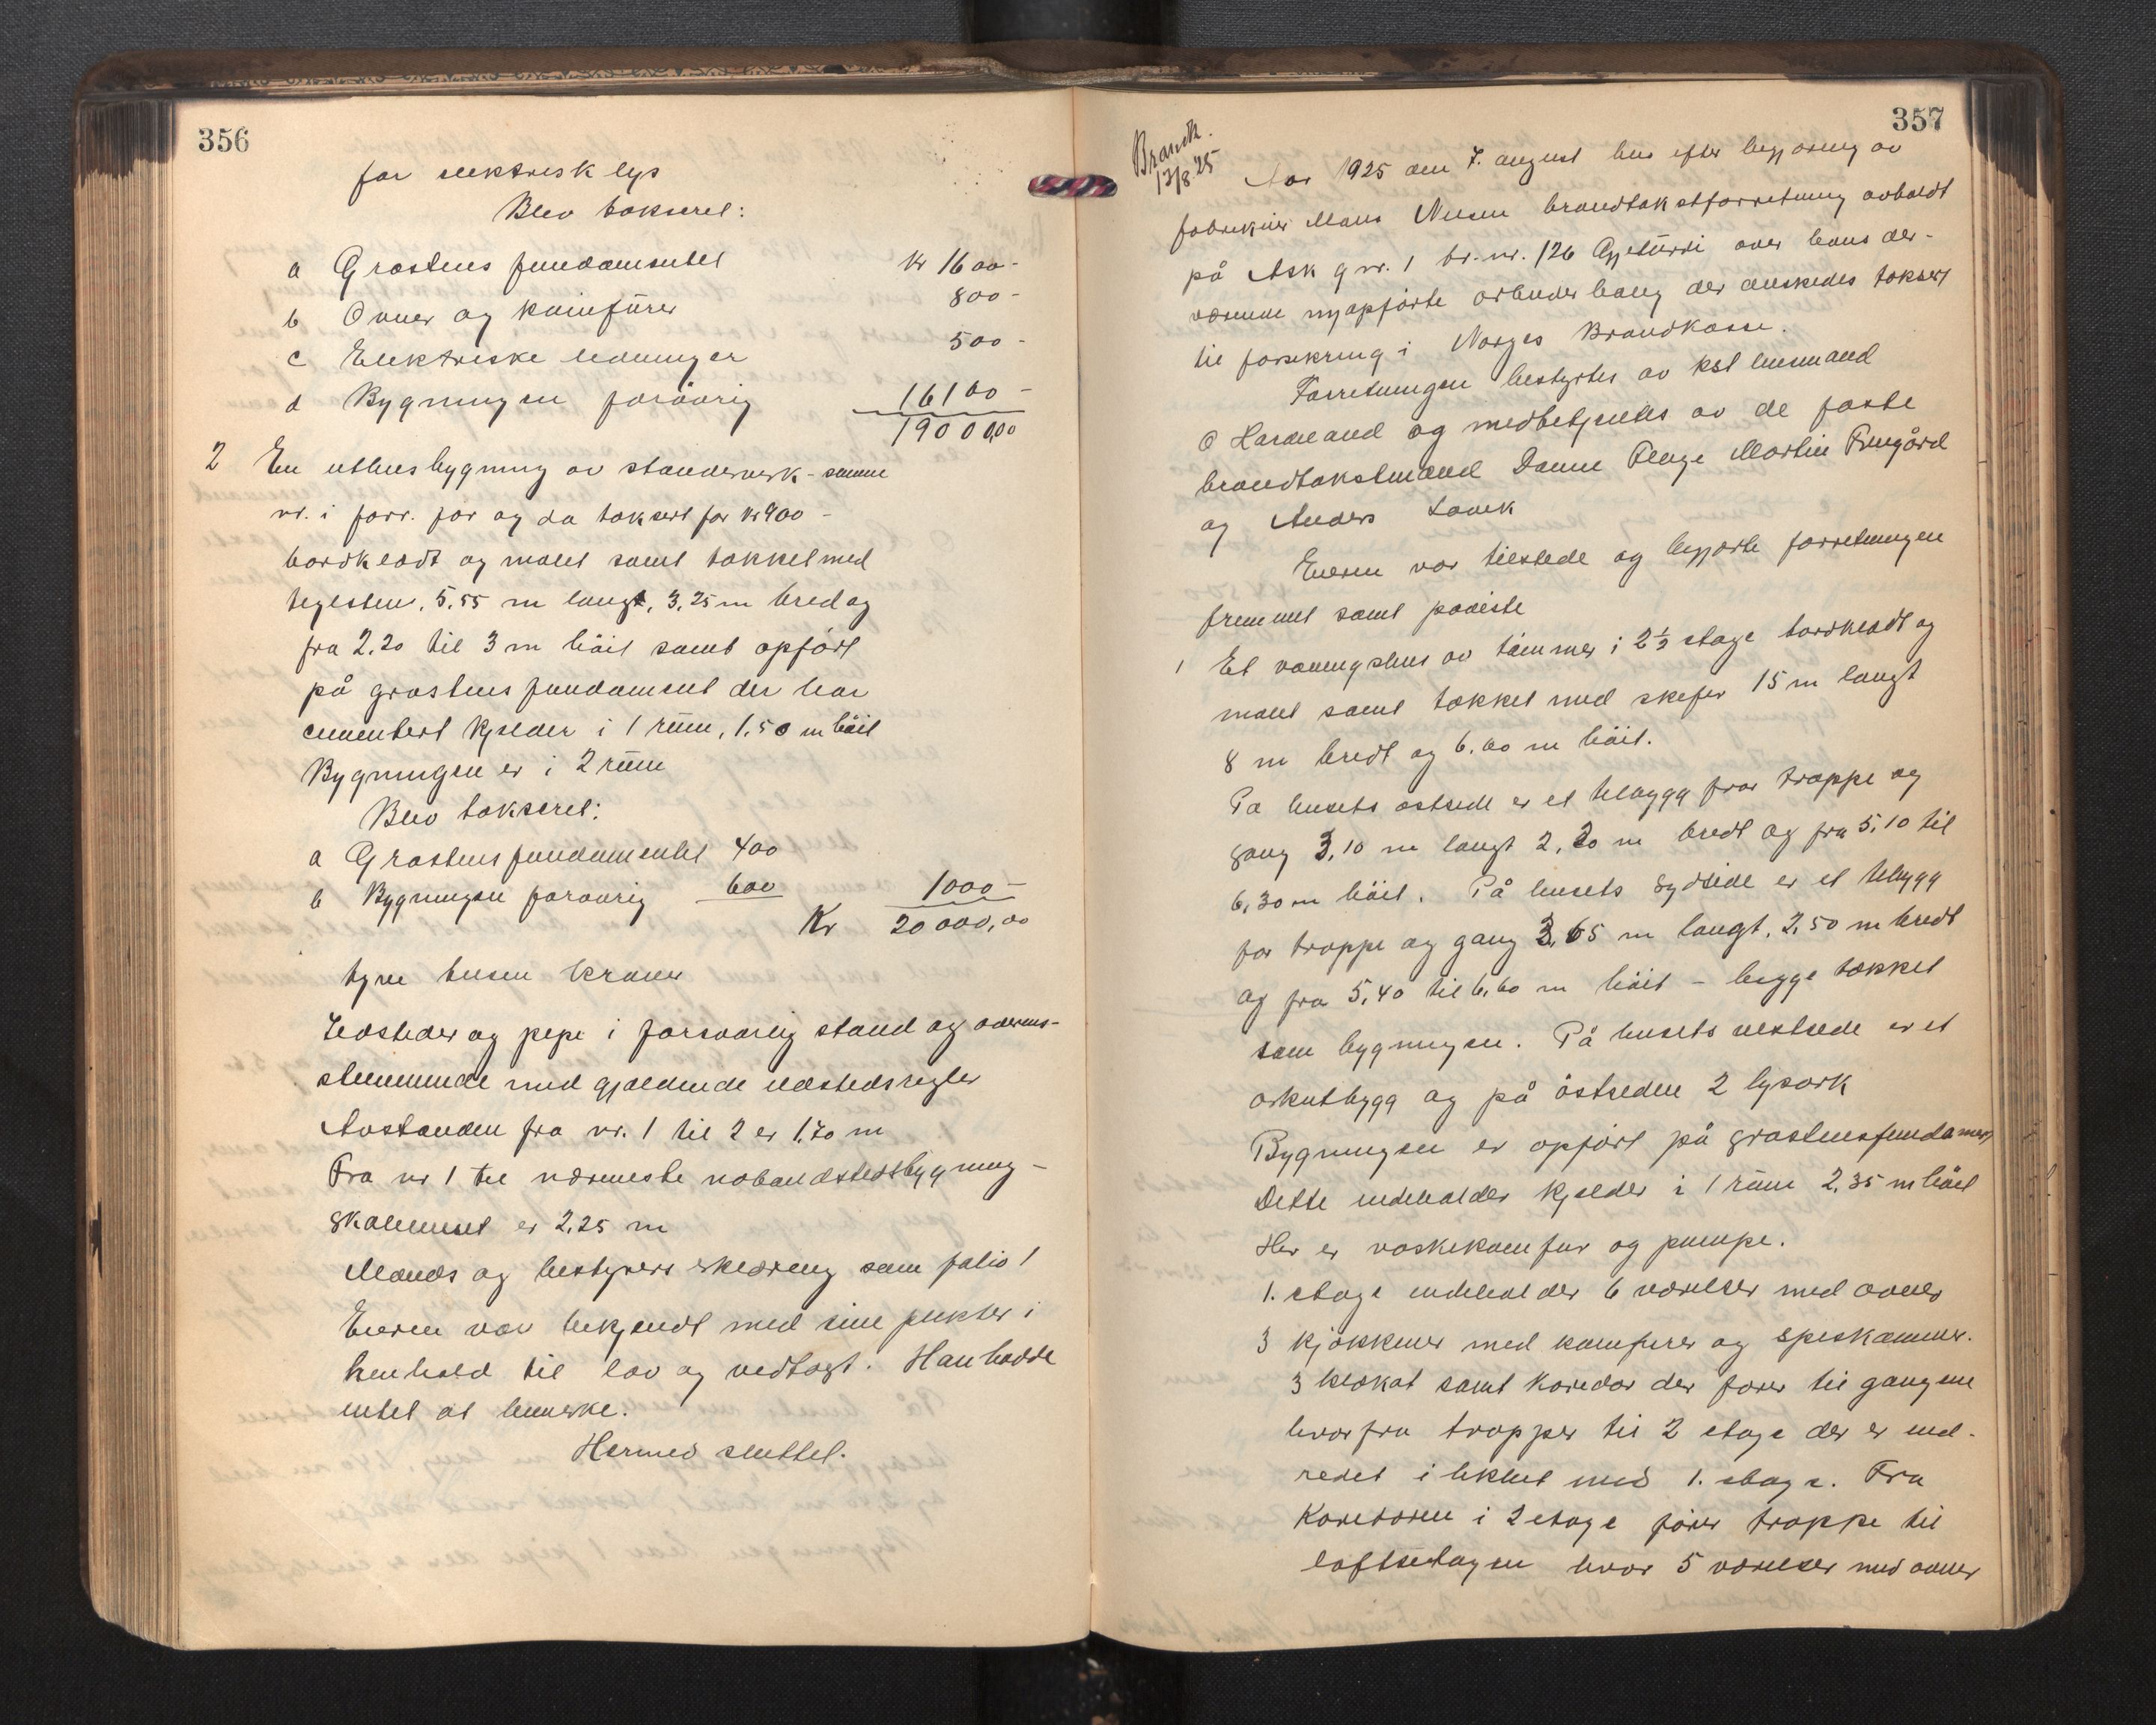 356
for elektrisk lys
Blev taksert:
a Gråstens fundamentet Kr 1600-
b Ovner og komfürer 800-
c Elektriske ledninger 500-
d Bygningen forøvrig 16100-
19000,00
2 En uthusbygning av stenderverk - samme
nr. i forr. for og da taksert for kr 900-
bordklædt og malet samt tækket med
teglsten. 5,55 m langt, 3,25 m bred og
fra 2.20 til 3 m höit samt opført
på gråstens fundament der har
cementert kjelder i 1 rüm, 1,50 m höit
Bygningen er i 2 rüm
Blev taksert:
a Gråstensfundamentet 400
b Bygningen forøvrig 600 1000-
Kr 20000,00
tyve tusen kroner
Ildsteder og pipe i forsvarlig stand og overens-
stemmende med gjældende ildstedsregler
Avstanden fra nr. 1 til 2 er 1,70 m
Fra nr 1 til nærmeste nabo
er 2,25 m
Mænds og bestyrers erklæring som folio 1
Eieren var bekjendt med sine plikter i
henhold til lov og vedtægt. Han hadde
intet at bemerke.
Hermed sluttet.
357
Brandk.
13/8 25
Aar 1925 den 7. august blev efter begjæring av
fabrikeier Mons Nilsen brandtakstforretning avholdt
på Ask g nr. 1 br. nr. 126 over hans der-
værende nyopførte arbeiderbolig der ønskedes taksert
til forsikring i Norges Brandkasse.
Forretningen bestyrtes av kst lensmand
O Hardeland og medbetjentes av de faste
brandtakstmænd Martin
og Anders
Eieren var tilstede og begjærte forretningen
fremmet samt påviste
1 Et våningshus av tømmer i 2½ etage bordklædt og
malet samt tækket med skifer 15 m langt
8 m bredt og 6.60 m höit.
På husets østside er et tilbygg for trappe og
gang 3,10 m langt 2,20 m bredt og fra 5,10 til
6,30 m höit. På husets sydside er et tilbygg
for trappe og gang 3,65 m langt, 2,50 m bredt
og fra 5,40 til 6,60 m höit - begge tækket
som bygningen. På husets vestside er et
arkutbygg og på østsiden 2 lysark
Bygningen er opført på gråstensfundament
Dette indeholder kjelder i 1 rüm 2,35 m höit
Her er vaskekomfur og pumpe.
1. etage indeholder 6 værelser med ovner
3 kjøkkener med komfurer og spiskammer.
3 klokat samt koridor der fører til gangene
hvorfra trapper til 2 etage der er ind-
redet i likhet med 1. etage. Fra
Koridoren i 2 etage fører trappe til
loftsetagen hvor 5 værelser med ovner